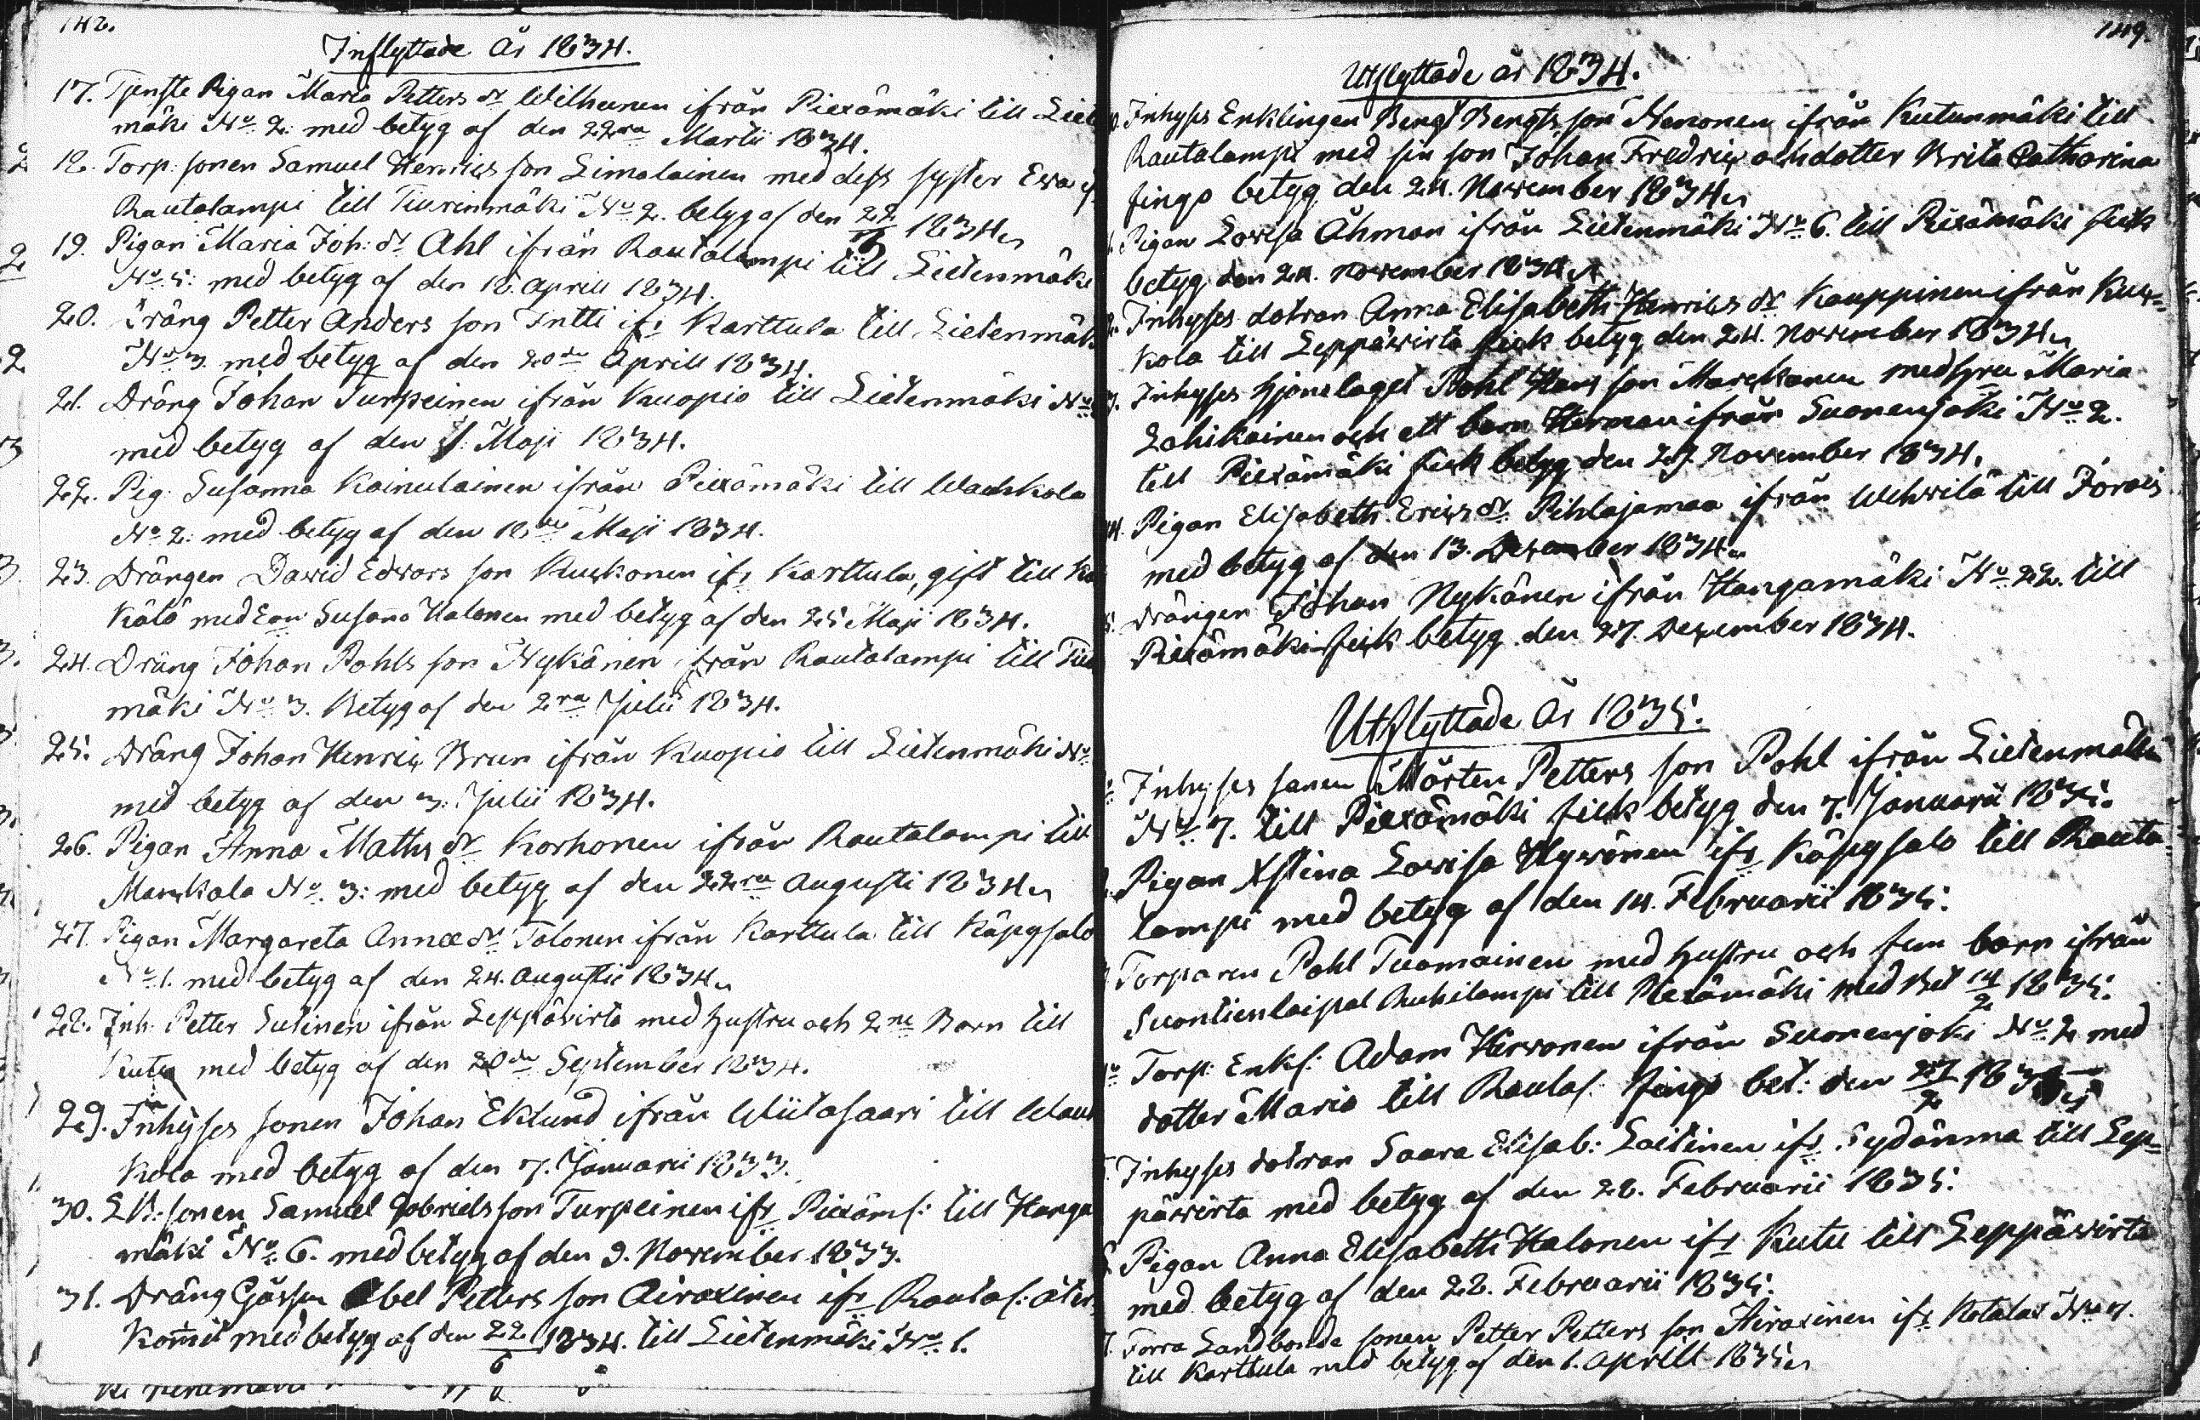 148.
Inflyttade År 1834.
17. Tjenste Pigan Maria Petters dr Wilhunen ifrån Piexämäki till Liet
mäki No 2. med betyg af den 22ra Martii 1834.
18. Torp: sonen Samuel Henrics son Limalainen med dess syster Ewa
Rautalampi till Tiurinmäki No 2. betyg af den 1834
19. Pigan Maria Joh: dr Ahl ifrån Rautalampi till Lietenmäki
No 5. med betyg af den 18 Aprill 1834.
20. Dräng Petter Anders son Intti ifr Karttula till Lietenmäk
No 3. med betyg af den 20de Aprill 1834.
21. Dräng Johan Turpeinen ifrån Kuopio till Lietenmäki No
med betyg af den 1. Maji 1834.
22. Pig: Susanna Kainulainen ifrån Piexämäki till Wauhkola
No 2. med betyg af den 18de Maji 1834.
23. Drängen David Edvars son Kuckonen ifr Karttula, gift till Ko
Kälä med Susana Halonen med betyg af den 25 Maji 1834.
24. Dräng Johan Pohls son Nykänen från Rautalampi till Tiu
mäki No 3. Betyg af den 2ra Julii 1834.
25. Dräng Johan Henric Brun ifrån Kuopio till Lietenmäki No
med betyg af den 3. Julii 1834.
26. Pigan Anna Maths dr Korhonen ifrån Rautalampi till
Markkala No 3: med betyg af den 22ra Augusti 1834
27. Pigan Margareta Annæ dr Tolonen ifrån Karttula till Käpysalo
No 1. med betyg af den 24. Augusti 1834
28. Inh: Petter Sutinen ifrån Leppävirta med hustru och 2ne Barn till
Kutu med betyg af den 20de September 1834.
29. Inhyses sonen Johan Eklund ifrån Wiitasaari till Wauh
kola med betyg af den 7. Januarii 1833.
30. LB: sonen Samuel Gabriels son Turpeinen ifr Piexämäki: till Hanga
mäki No 6. med betyg af den 9. November 1833.
31. Dräng Gåssen Abel Petters son Airaxinen ifr Rautal: åter
komit med betyg af den 22/6 1834. till Lietenmäki No 1.
149.
Utflyttade år 1834.
Inhyses Enklingen Bengt Bengts son Henonen ifrån Kutunmäki till
Rautalampi med sin son Johan Fredric och dotter Brita Catharina
fingo betyg den 24. November 1834
Pigan Lovisa Åhman ifrån Lietenmäki No 6. till Piexämäki fick
betyg den 24. November 1834
Inhyses dotran Anna Elisabeth Henrics dr Kauppinen ifrån Kur=
kola till Leppävirta fick betyg den 24. November 1834
Inhyses hjonelaget Pohl Hans son Marckanen med hru Maria
Lahikainen och ett barn Herman ifrån Suonenjoki No 2.
till Piexämäki fick betyg den 29. November 1834.
14. Pigan Elisabeth Erics dr Pihlajamaa ifrån Wehvilä till Jorois
med betyg af den 13. December 1834
Drängen Johan Nykänen ifrån Hangamäki No 22. till
Piexämäki fick betyg den 27. December 1834.
Utflyttade År 1835.
Inhyses sonen Mårten Petters son Pohl ifrån Lietenmäki
No 7. till Piexämäki fick betyg den 7. Januarii 1835.
Pigan Xstina Lovisa Hyvönen ifr Käpysalo till Rauta=
lampi med betyg af den 14. Februarii 1835.
Torparen Pohl Tuomainen med hustru och fem barn ifrån
Suontienlaipal Ruhilampi till Piexämäki med Bet 14/2 1835.
Torp: Enkl: Adam Hirvonen ifrån Suonenjoki No 2 med
dotter Maria till Rautal: fingo bet: den 27/2 1835
Inhyses dotran Saara Elisab: Laitinen ifr Sydänma till Lep=
pävirta med betyg af den 28. Februarii 1835.
Pigan Anna Elisabeth Halonen ifr Kutu till Leppävirta
med betyg af den 22. Februarii 1835.
Forra Landbonde sonen Petter Petters son Airaxinen ifr Kotalax No 7.
till Karttula med betyg af den 1. Aprill 1835